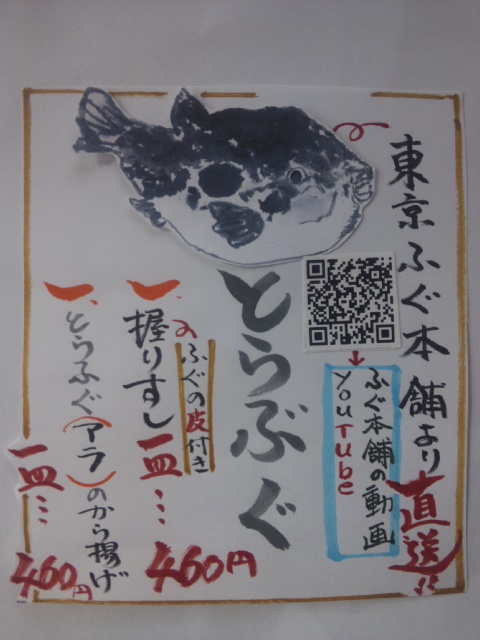 東京ふぐ本舗より直送!!
ふぐ本舗の動画
YouTube
とらふぐ
一、握りすし一皿…460円
ふぐの皮付き
一、とらふぐ(アラ)のから揚げ
一皿…460円